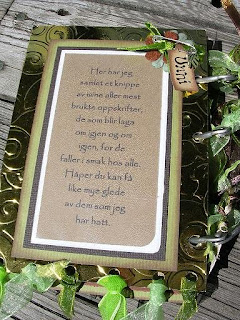 Her har jeg
samlet et knippe
av mine aller mest
brukte oppskrifter,
de som blir laga
om igjen og om
igjen, for de
faller i smak hos alle.
Håper du kan få
like mye glede
av dem som jeg
har hatt.